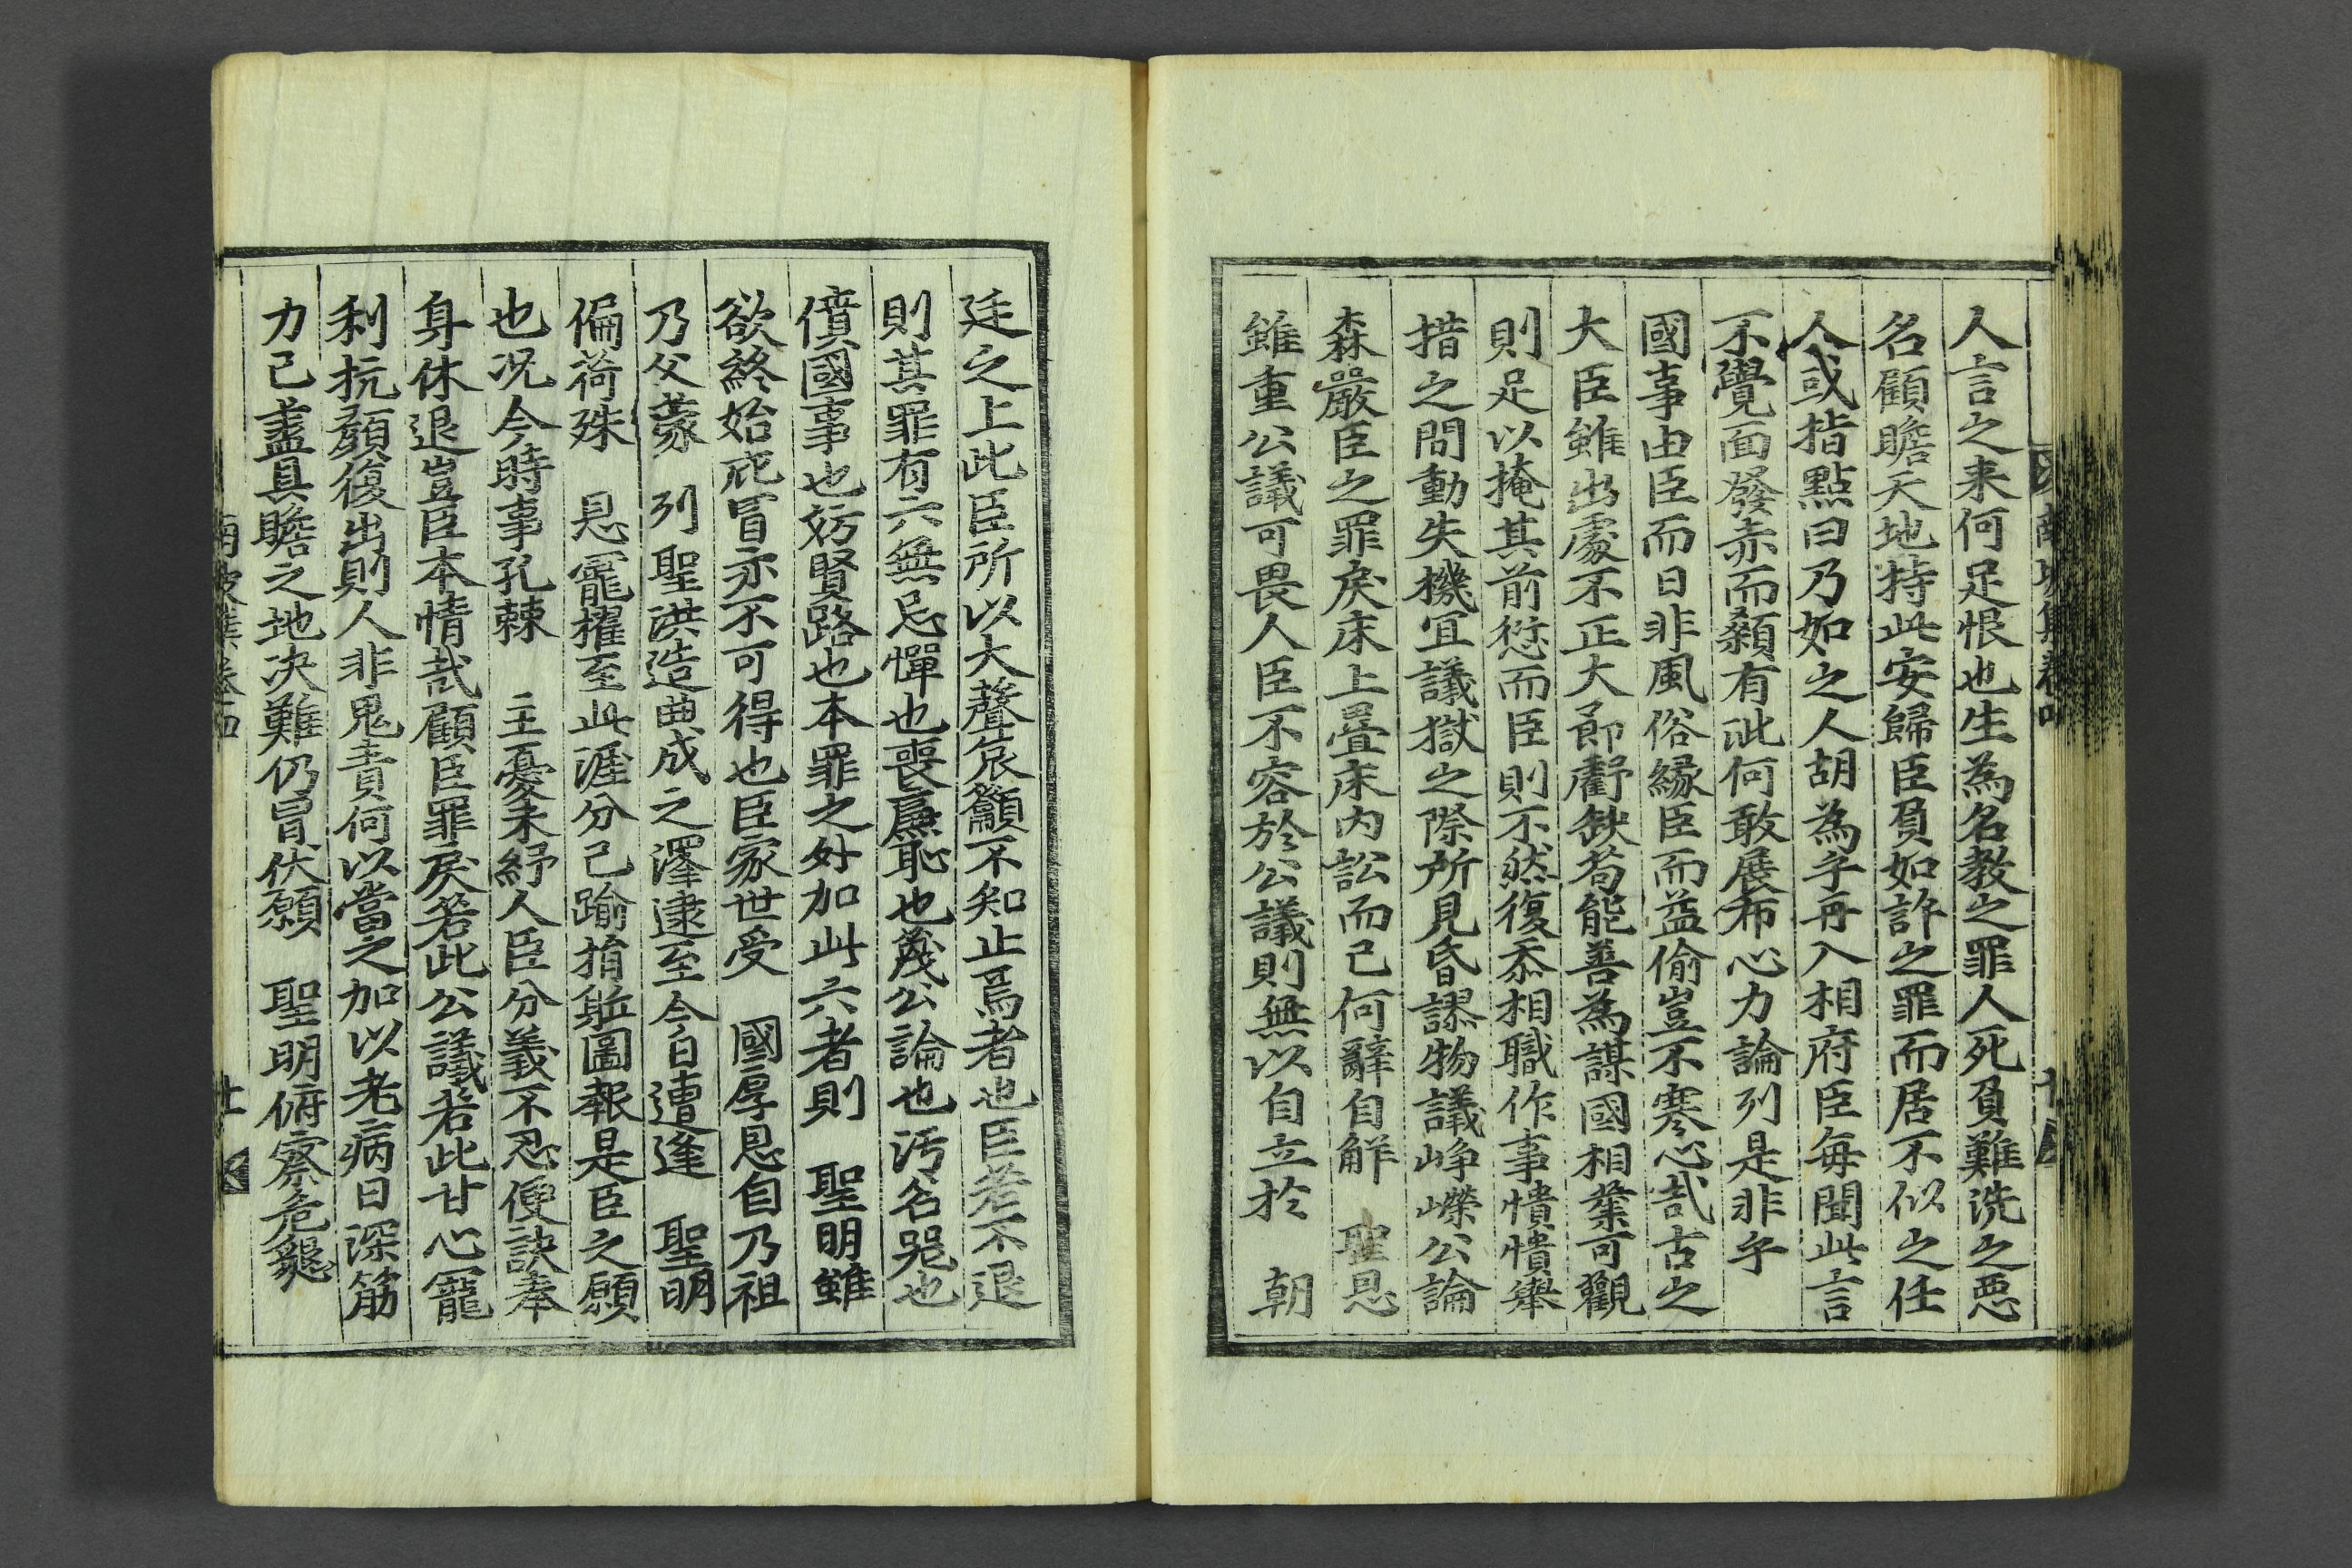 人言之来何足恨也生為名教之罪人死負難洗之惡
名顧瞻天地持此安歸臣負如許之罪而居不似之任
人或指點曰乃如之人胡為乎再入相府臣每聞此言
不覺面發赤而顙有泚何敢展布心力論列是非乎
國事由臣而日非風俗緣臣而益偷豈不寒心哉古之
大臣雖出處不正大節虧缺苟能善為謀國相業可觀
則足以掩其前愆而臣則不然復忝相職作事憒憒舉
措之間動失機宜議獄之際所見昏謬物議崢嶸公論
森嚴臣之罪戾床上疊床內訟而已何辭自解 聖恩
雖重公議可畏人臣不容於公議則無以自立於 朝
廷之上此臣所以大聲哀籲不知止焉者也臣老不退
則其罪有六無忌憚也喪廉恥也蔑公論也汚名器也
僨國事也妨賢路也本罪之外加此六者則 聖明雖
欲終始庇冒亦不可得也臣家世受 國厚恩自乃祖
乃父蒙 列聖洪造曲成之澤逮至今日遭逢 聖明
偏荷殊 恩寵擢至此涯分已踰捐軀圖報是臣之願
也况今時事孔棘 主憂未紓人臣分義不忍便訣奉
身休退豈臣本情哉顧臣罪戾若此公議若此甘心寵
利抗顏復出則人非鬼責何以當之加以老病日深筋
力已盡具瞻之地决難仍冒伏願 聖明俯察危懇